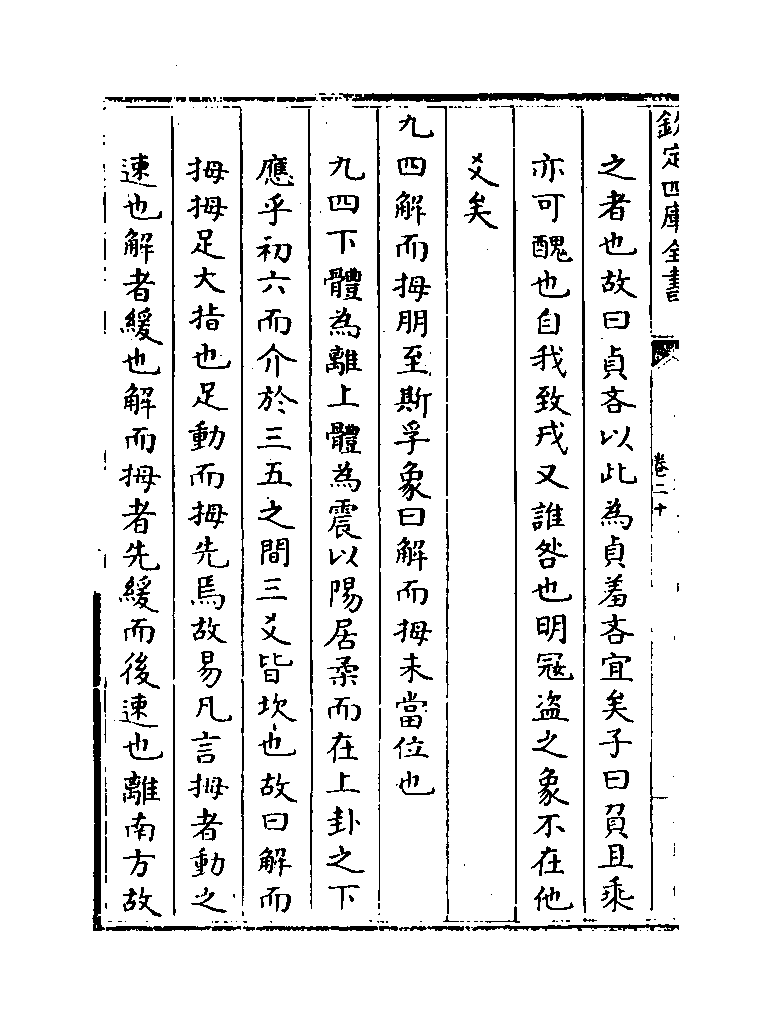 欽定四庫全書
卷二十
之者也故曰貞吝以此為貞羞吝宜矣子曰負且乘
亦可醜也自我致戎又誰咎也明冦盗之象不在他
爻矣
九四解而拇朋至斯孚象曰解而拇未當位也
九四下體為離上體為震以陽居柔而在上卦之下
應乎初六而介於三五之間三爻皆坎也故曰解而
拇拇足大指也足動而拇先焉故易凡言拇者動之
速也解者緩也解而拇者先緩而後速也離南方故